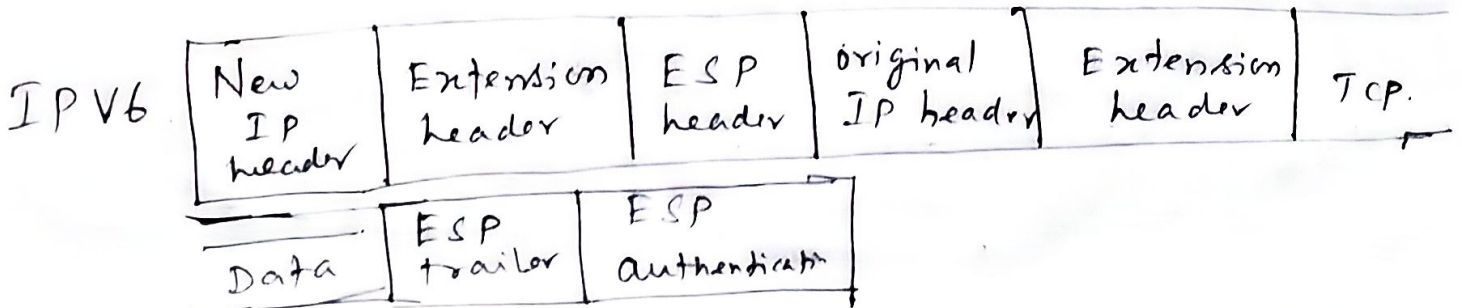 IPV6
New IP header
Extension header
ESP header
original IP header
Extension header
TCP.
Data
ESP trailer
ESP authentication